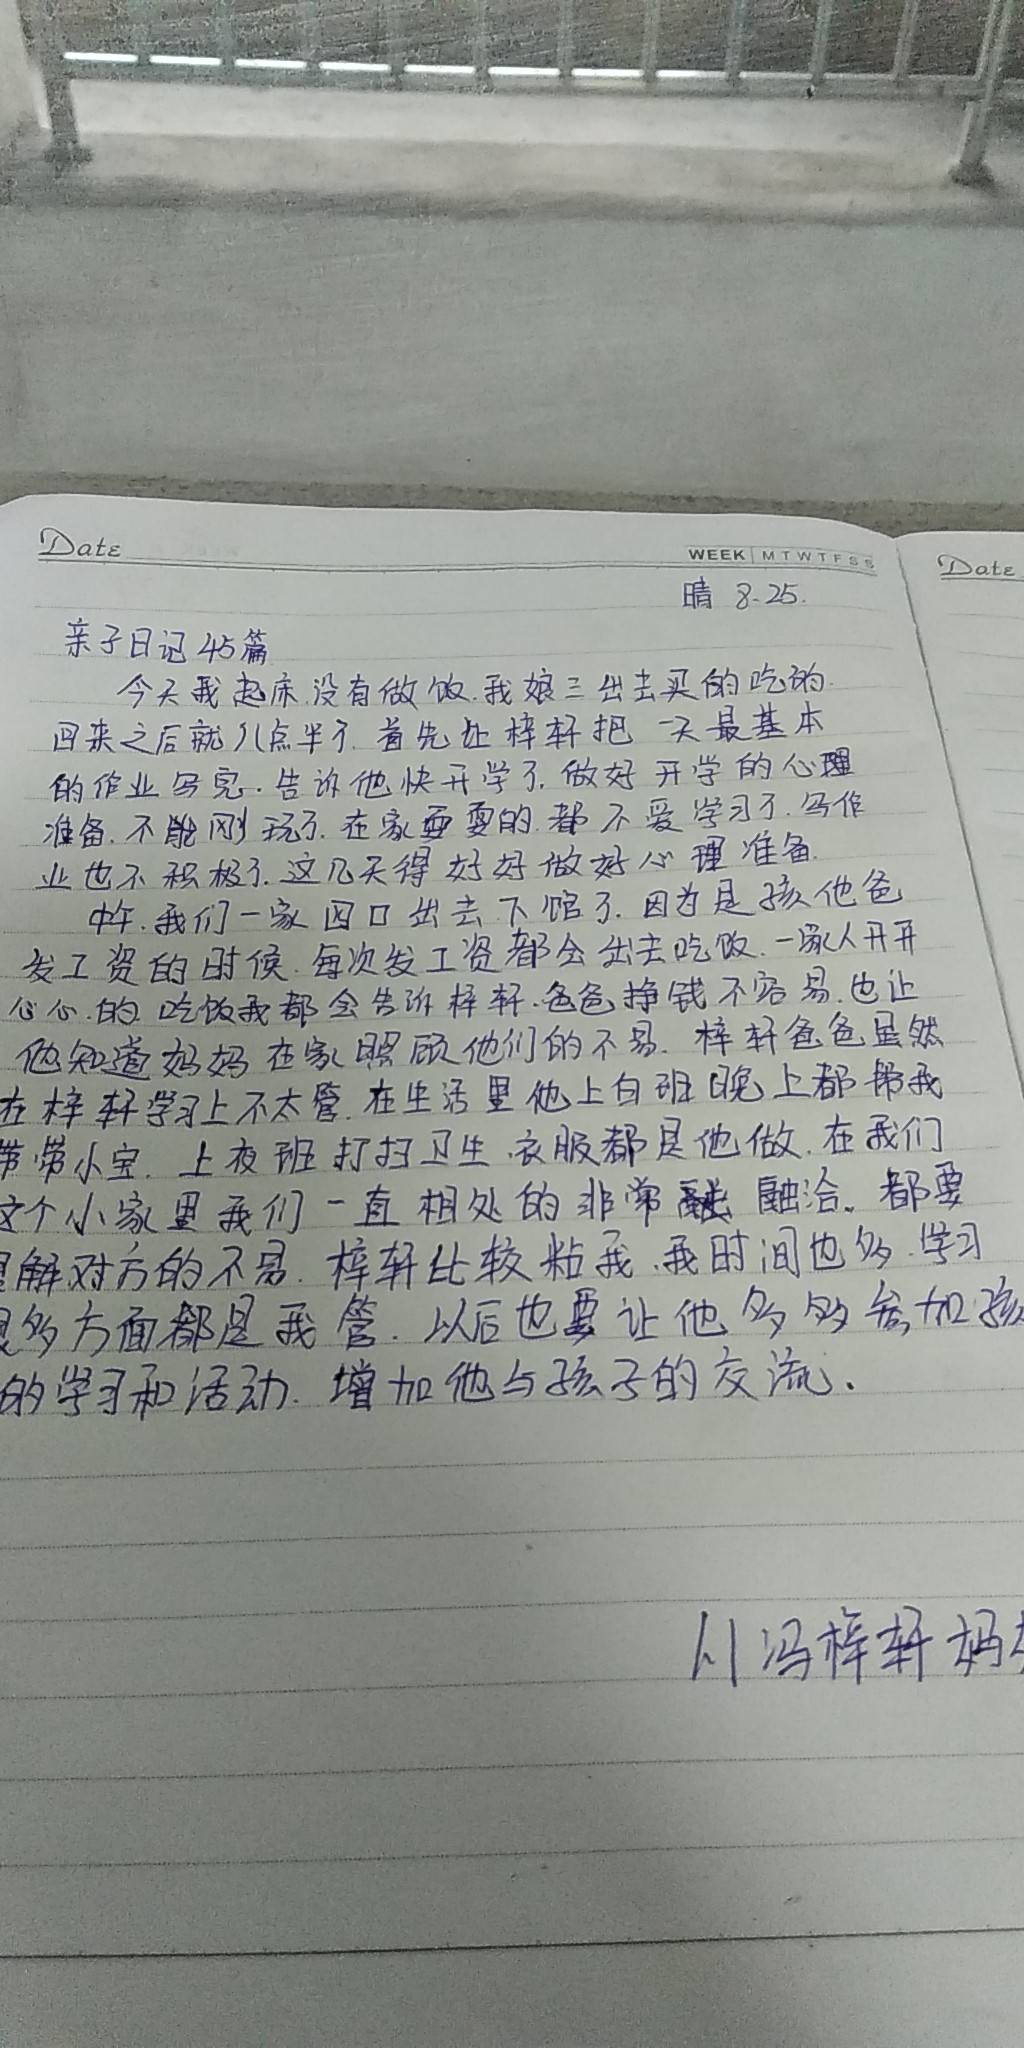 Date
WEEK M T W T F S S
Date
晴 8.25.
亲子日记45篇
今天我起床.没有做饭.我娘三出去买的吃的.
回来之后就八点半了.首先让梓轩把一天最基本
的作业写完.告诉他快开学了.做好开学的心理
准备.不能刚玩了.在家耍耍的.都不爱学习了.写作
业也不积极了.这几天得好好做好心理准备.
中午.我们一家四口出去下馆了.因为是孩他爸
发工资的时候.每次发工资都会出去吃饭.一家人开开
心心.的吃饭我都会告诉梓轩.爸爸挣钱不容易.也让
他知道妈妈在家照顾他们的不易.梓轩爸爸虽然
在梓轩学习上不太管.在生活里他上白班晚上都帮我
带带小宝.上夜班打扫卫生.衣服都是他做.在我们
这个小家里我们一直相处的非常融洽。都要
理解对方的不易.梓轩比较粘我.我时间也多.学习
很多方面都是我管.以后也要让他多多参加孩
的学习和活动.增加他与孩子的交流.
冯梓轩妈